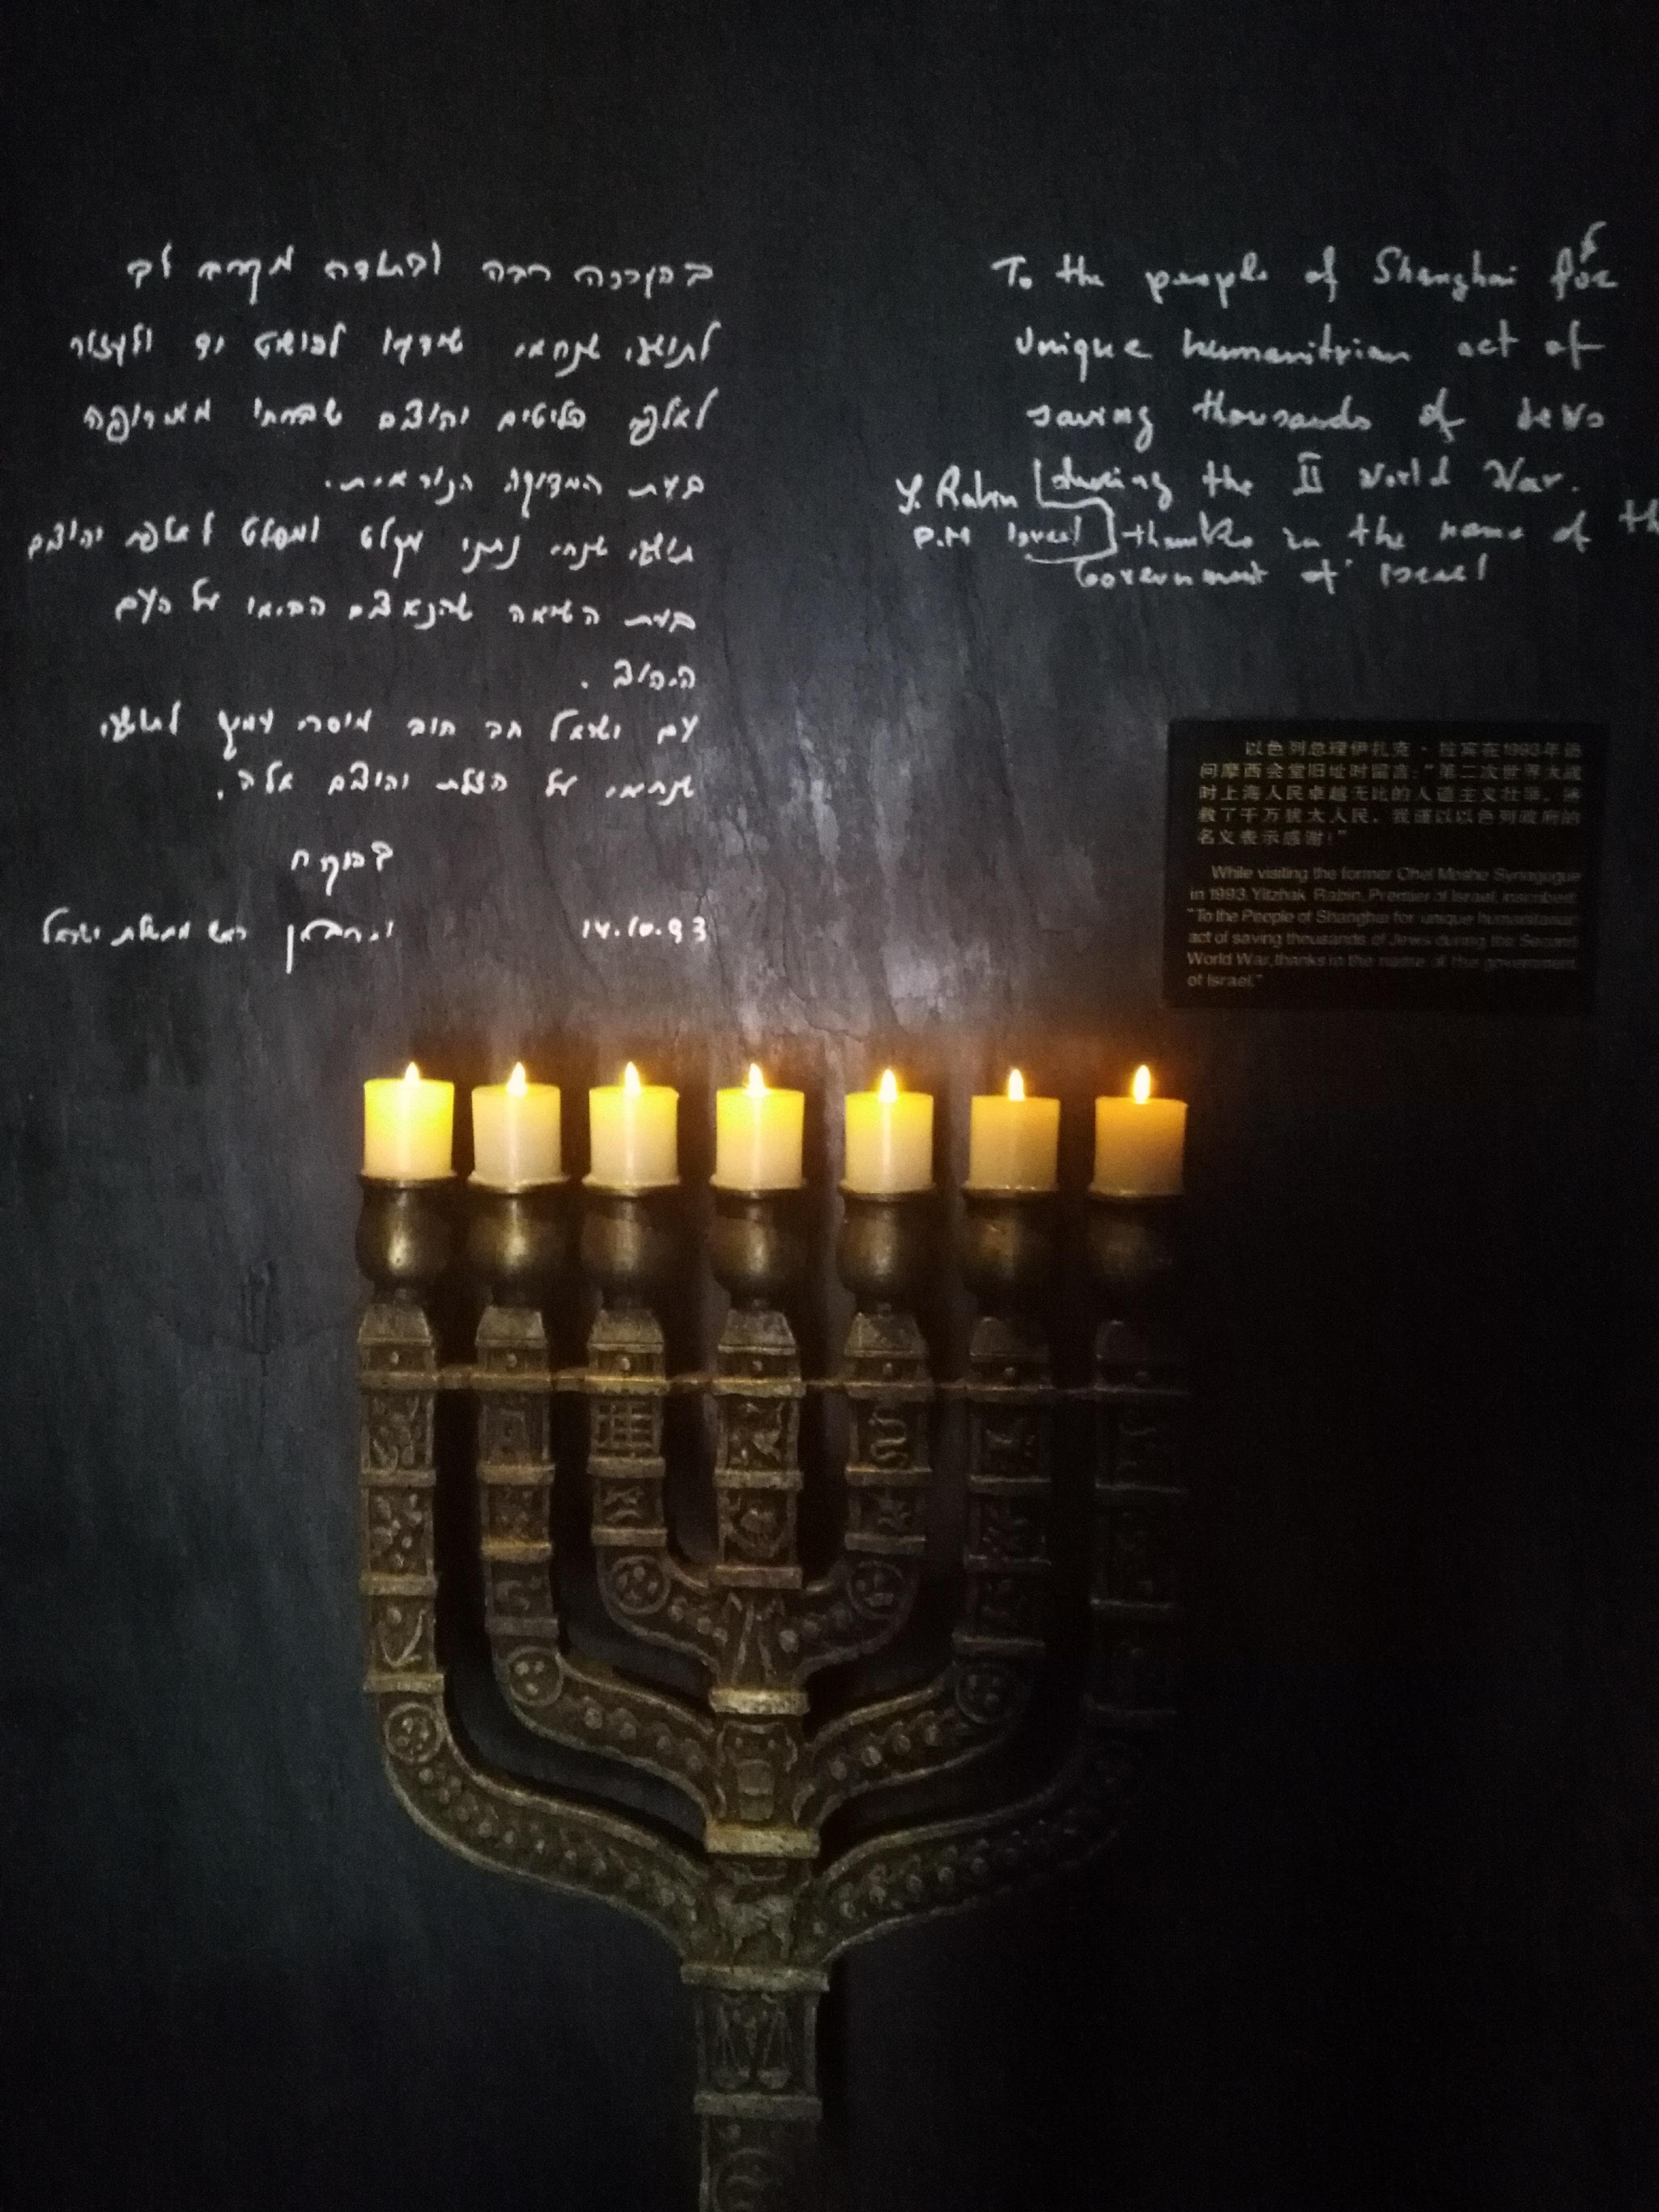 בהוקרה רבה ובתודה מקרב לב
לתושבי שנחאי שידעו להושיט יד ולעזור
לאלפי פליטים יהודים שברחו מאירופה
בעת המצוקה הנוראית.
תושבי שנחי נתנו מקלט ומפלט לאלפי יהודים
בעת השואה שהנאצים הביאו על העם
היהודי.
עם ישראל חב חוב מוסרי עמוק לתושבי
שנחאי על הצלת יהודים אלה.
בהוקרה
14.10.93 י. רבין ראש ממשלת ישראל
To the people of Shanghai for
unique humanitrian act of
saving thousands of Jews
during the II World War.
thanks in the name of th
Government of Israel
Y. Rabin
P.M Israel
以色列总理伊扎克·拉宾在1993年访
问摩西会堂旧址时留言:“第二次世界大战
时上海人民卓越无比的人道主义壮举,拯
救了千万犹太人民,我谨以以色列政府的
名义表示感谢!”
While visiting the former Ohel Moshe Synagogue
in 1993, Yitzhak Rabin, Premier of Israel, inscribed:
"To the People of Shanghai for unique humanitarian
act of saving thousands of Jews during the Second
World War, thanks in the name of the government
of Israel."